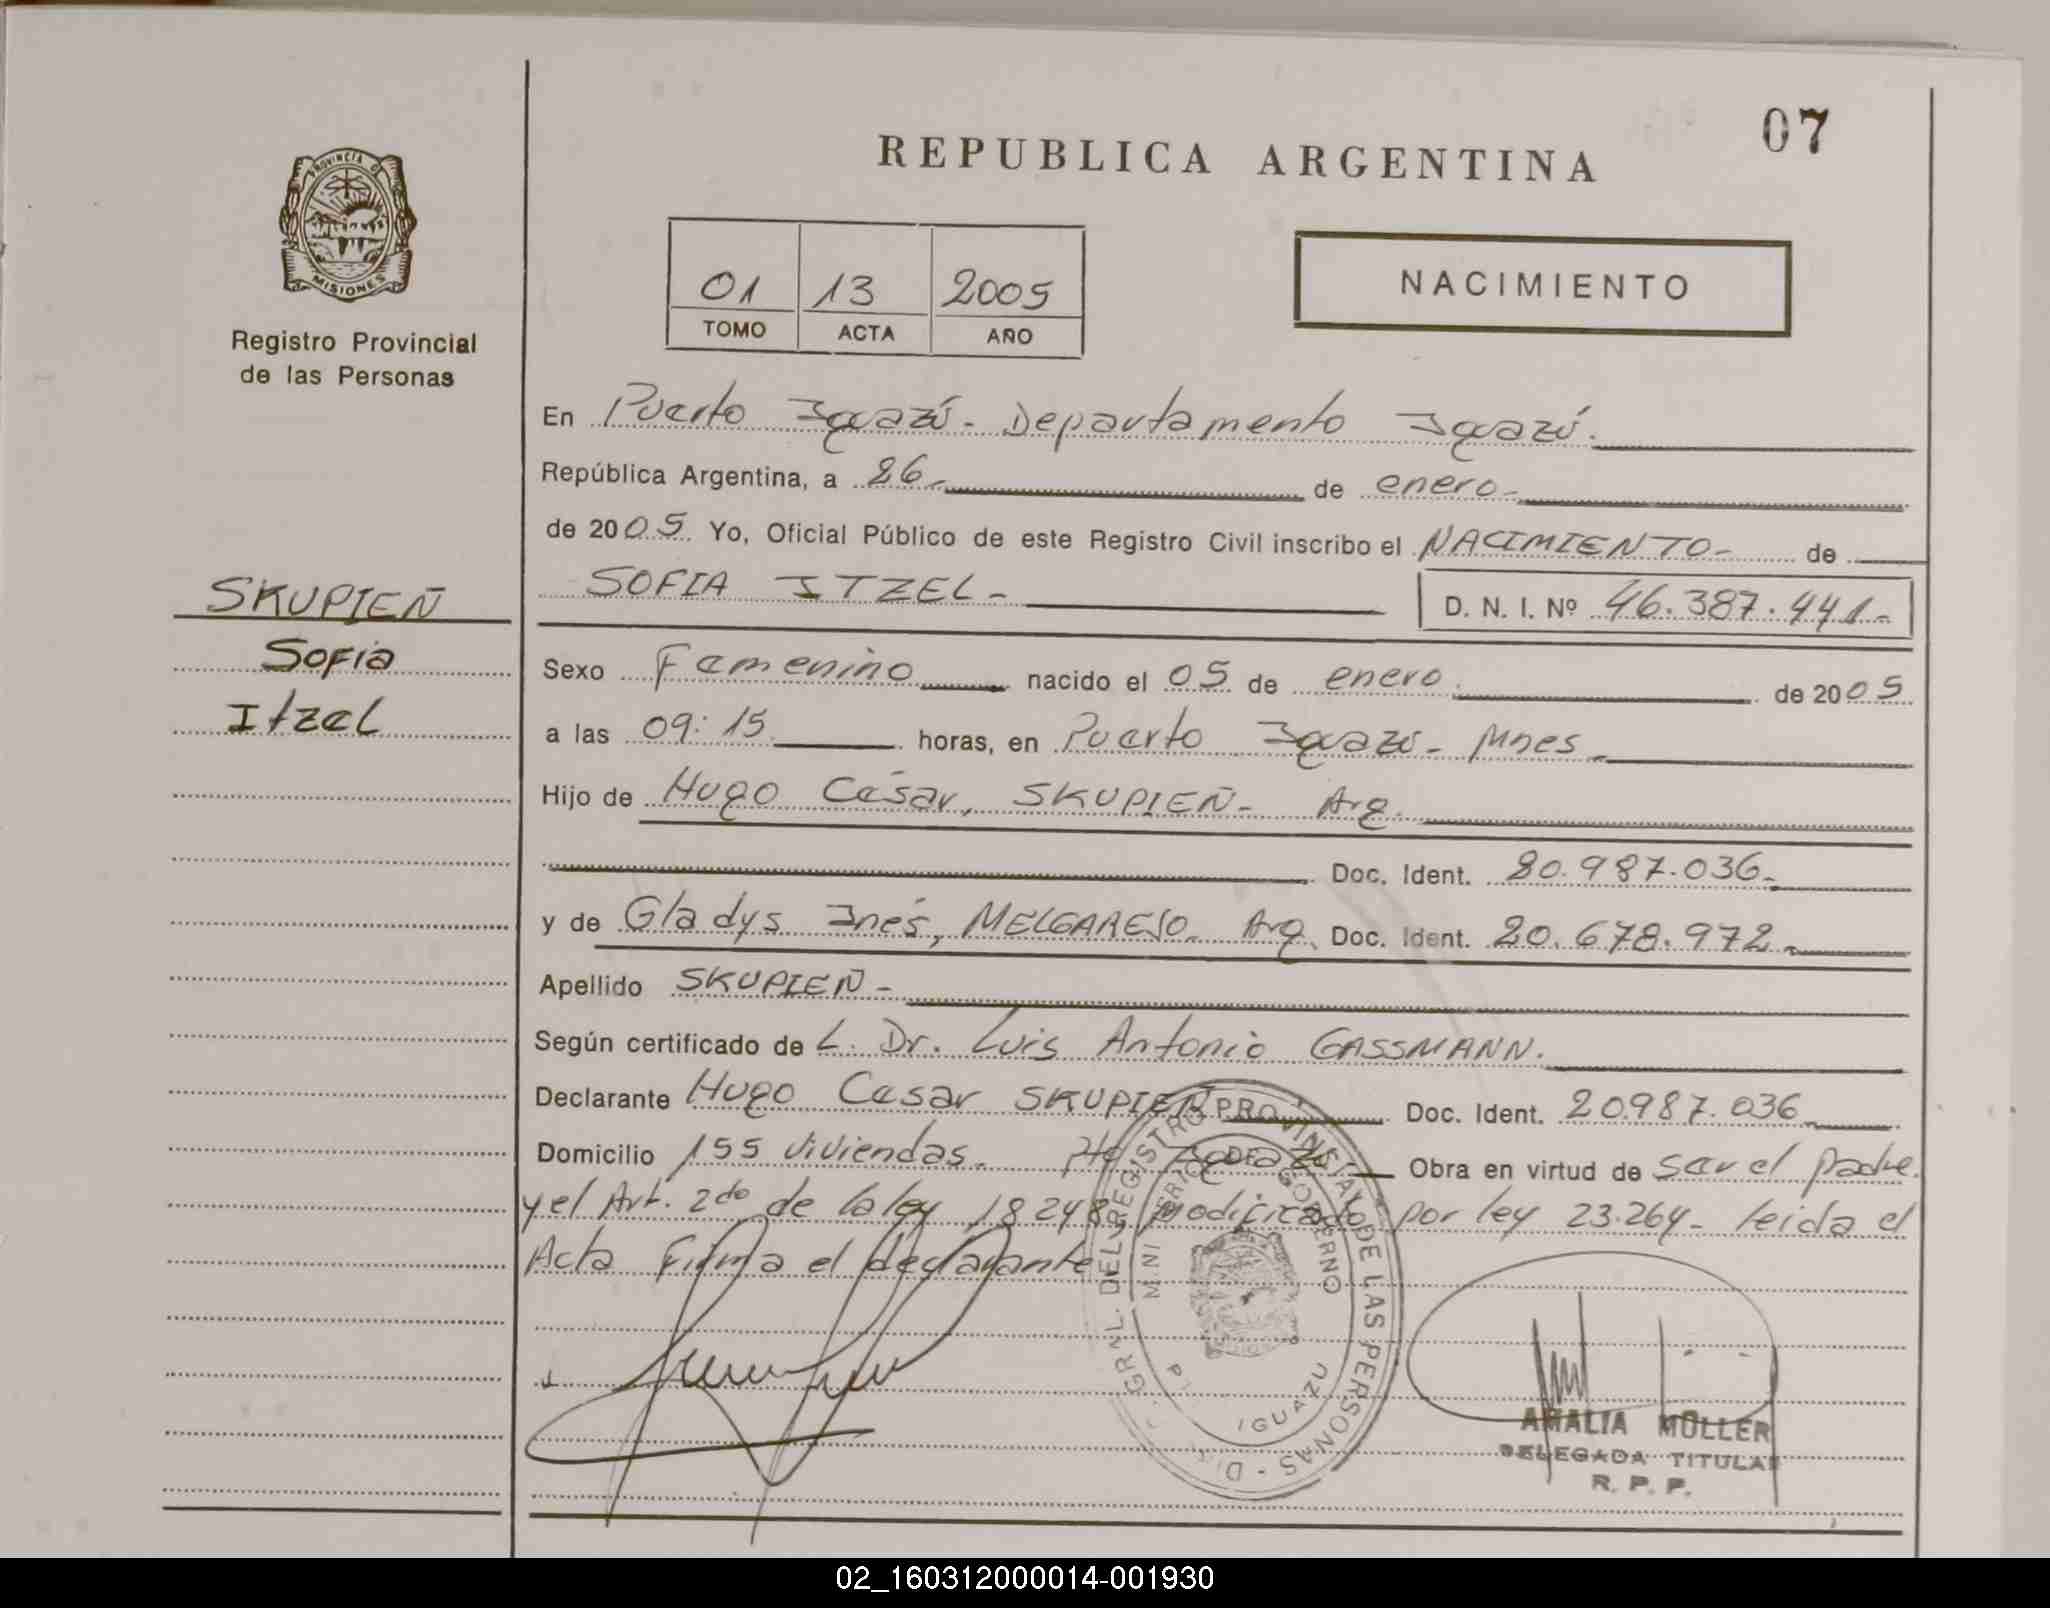 07
REPUBLICA ARGENTINA
PROVINCIA D
MISIONES
Registro Provincial
de las Personas
01 13 2005
TOMO ACTA AÑO
NACIMIENTO
En Puerto Iguazú - Departamento Iguazú.
República Argentina, a 26 - de enero -
de 2005. Yo, Oficial Público de este Registro Civil inscribo el NACIMIENTO - de
SOFIA ITZEL - D. N. I. Nº 46.387.441 -
SKUPIEÑ
Sofia
Itzel
Sexo Femenino nacido el 05 de enero. de 2005
a las 09:15 horas, en Puerto Iguazú - Mnes -
Hijo de Hugo César, SKUPIEÑ - Arg.
Doc. Ident. 20.987.036 -
y de Gladys Inés, MELGAREJO - Arg. Doc. Ident. 20.678.972 -
Apellido SKUPIEÑ -
Según certificado de L. Dr. Luis Antonio GASSMANN.
Declarante Hugo Cesar SKUPIEÑ Doc. Ident. 20987.036
Domicilio 155 viviendas. Pto Iguazú Obra en virtud de ser el padre
y el Art. 2do de la ley 18248, modificado por ley 23.264 - leida el
Acta Firma el declarante
DIR. GRAL. DEL REGISTRO PROVINCIAL DE LAS PERSONAS
MINISTERIO DE GOBIERNO
IGUAZU
AMALIA MULLER
DELEGADA TITULAR
R. P. P.
02_160312000014-001930